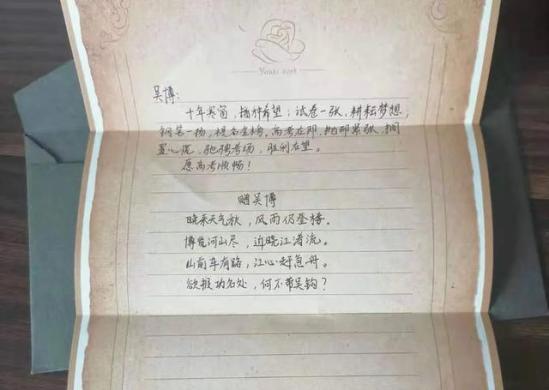 吴博:
十年寒窗,播种希望;试卷一张,耕耘梦想,
钢笔一杨,提名金榜。高考在即,抛却紧张,搁
置心慌,驰骋考场,胜利在望。
愿高考顺畅!
赠吴博
晚来天气秋,风雨仍登楼。
博览河山尽,近晓江潜流。
山前车有路,江心赶急舟。
欲报功名处,何不带吴钩?